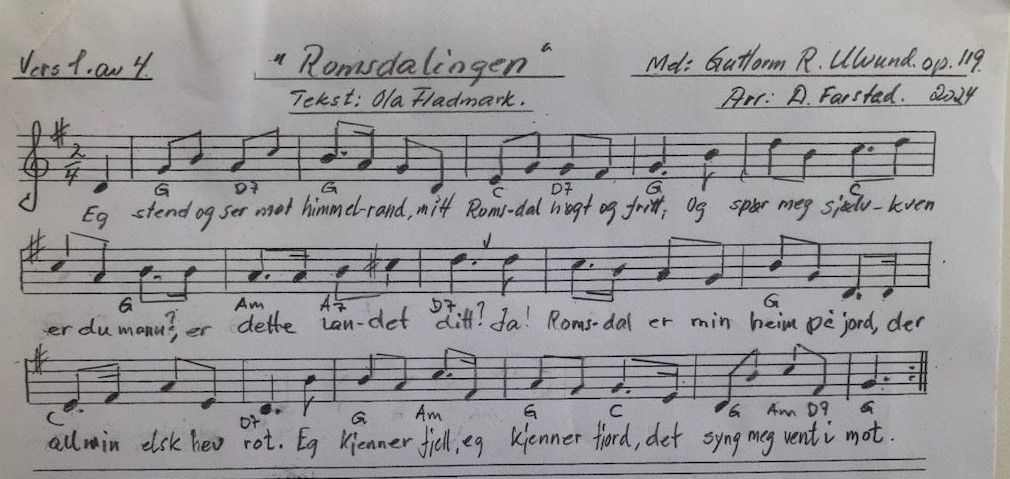 Vers 1. av 4.
" Romsdalingen "
Mel: Guttorm R. Ulvund. op. 119.
Tekst: Ola Fladmark.
Arr: D. Farstad. 2024
2/4
G D7 G C D7 G C
Eg stend og ser mot himmel-rand, mitt Roms-dal høgt og fritt, Og spør meg sjølv-kven
G Am A7 D7 G
er du mann?, er dette lan-det ditt? Ja! Roms-dal er min heim på jord, der
C D7 G Am G C G Am D7 G
all min elsk hev rot. Eg kjenner fjell, eg kjenner fjord, det syng meg vent i mot.